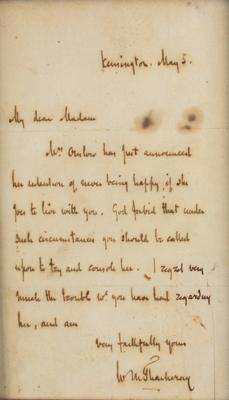 Kensington. May 5.
My dear Madam
Mrs Onslow has just announced
her intention of never being happy if she
goes to live with you. God forbid that under
such circumstances you should be called
upon to try and console her. I regret very
much the trouble wh. you have had regarding
her, and am
very faithfully yours
W M Thackeray